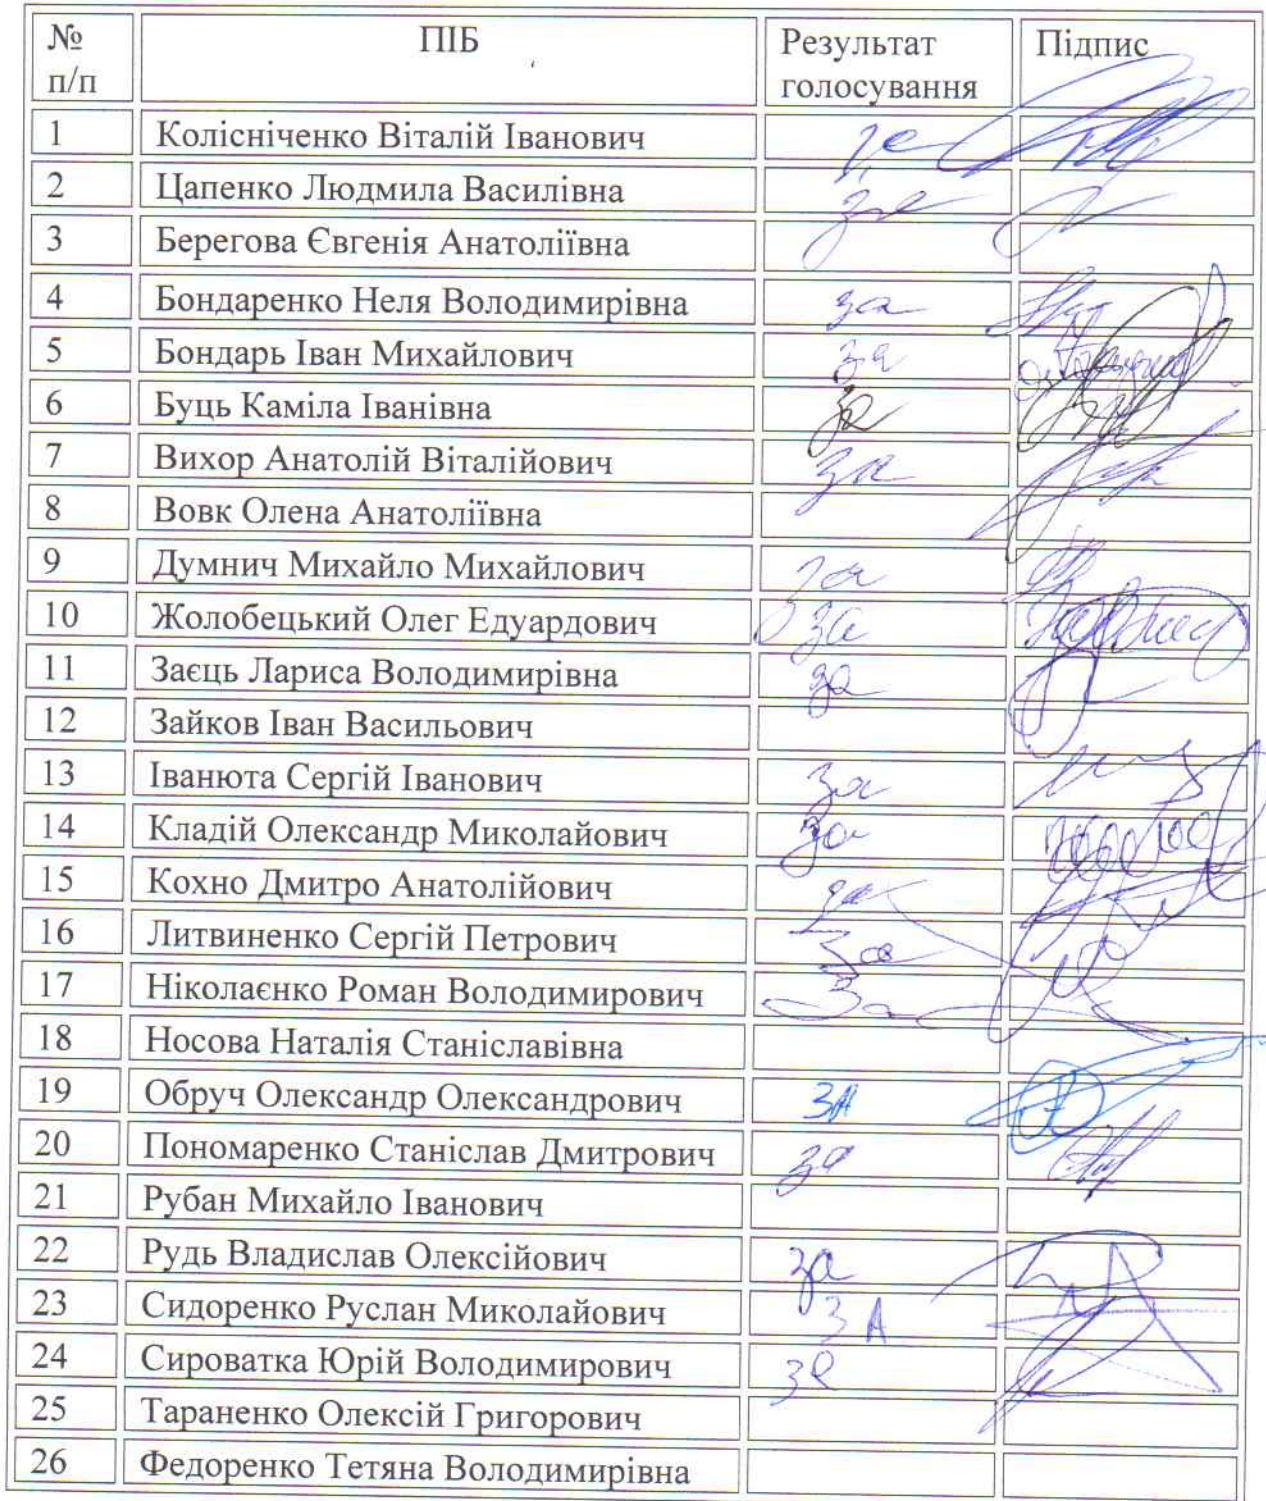 № п/п ПІБ Результат голосування Підпис
1 Колісніченко Віталій Іванович за
2 Цапенко Людмила Василівна за
3 Берегова Євгенія Анатоліївна
4 Бондаренко Неля Володимирівна за
5 Бондарь Іван Михайлович за
6 Буць Каміла Іванівна за
7 Вихор Анатолій Віталійович за
8 Вовк Олена Анатоліївна
9 Думнич Михайло Михайлович за
10 Жолобецький Олег Едуардович за
11 Заєць Лариса Володимирівна за
12 Зайков Іван Васильович
13 Іванюта Сергій Іванович за
14 Кладій Олександр Миколайович за
15 Кохно Дмитро Анатолійович за
16 Литвиненко Сергій Петрович За
17 Ніколаєнко Роман Володимирович За
18 Носова Наталія Станіславівна
19 Обруч Олександр Олександрович ЗА
20 Пономаренко Станіслав Дмитрович за
21 Рубан Михайло Іванович
22 Рудь Владислав Олексійович за
23 Сидоренко Руслан Миколайович ЗА
24 Сироватка Юрій Володимирович за
25 Тараненко Олексій Григорович
26 Федоренко Тетяна Володимирівна